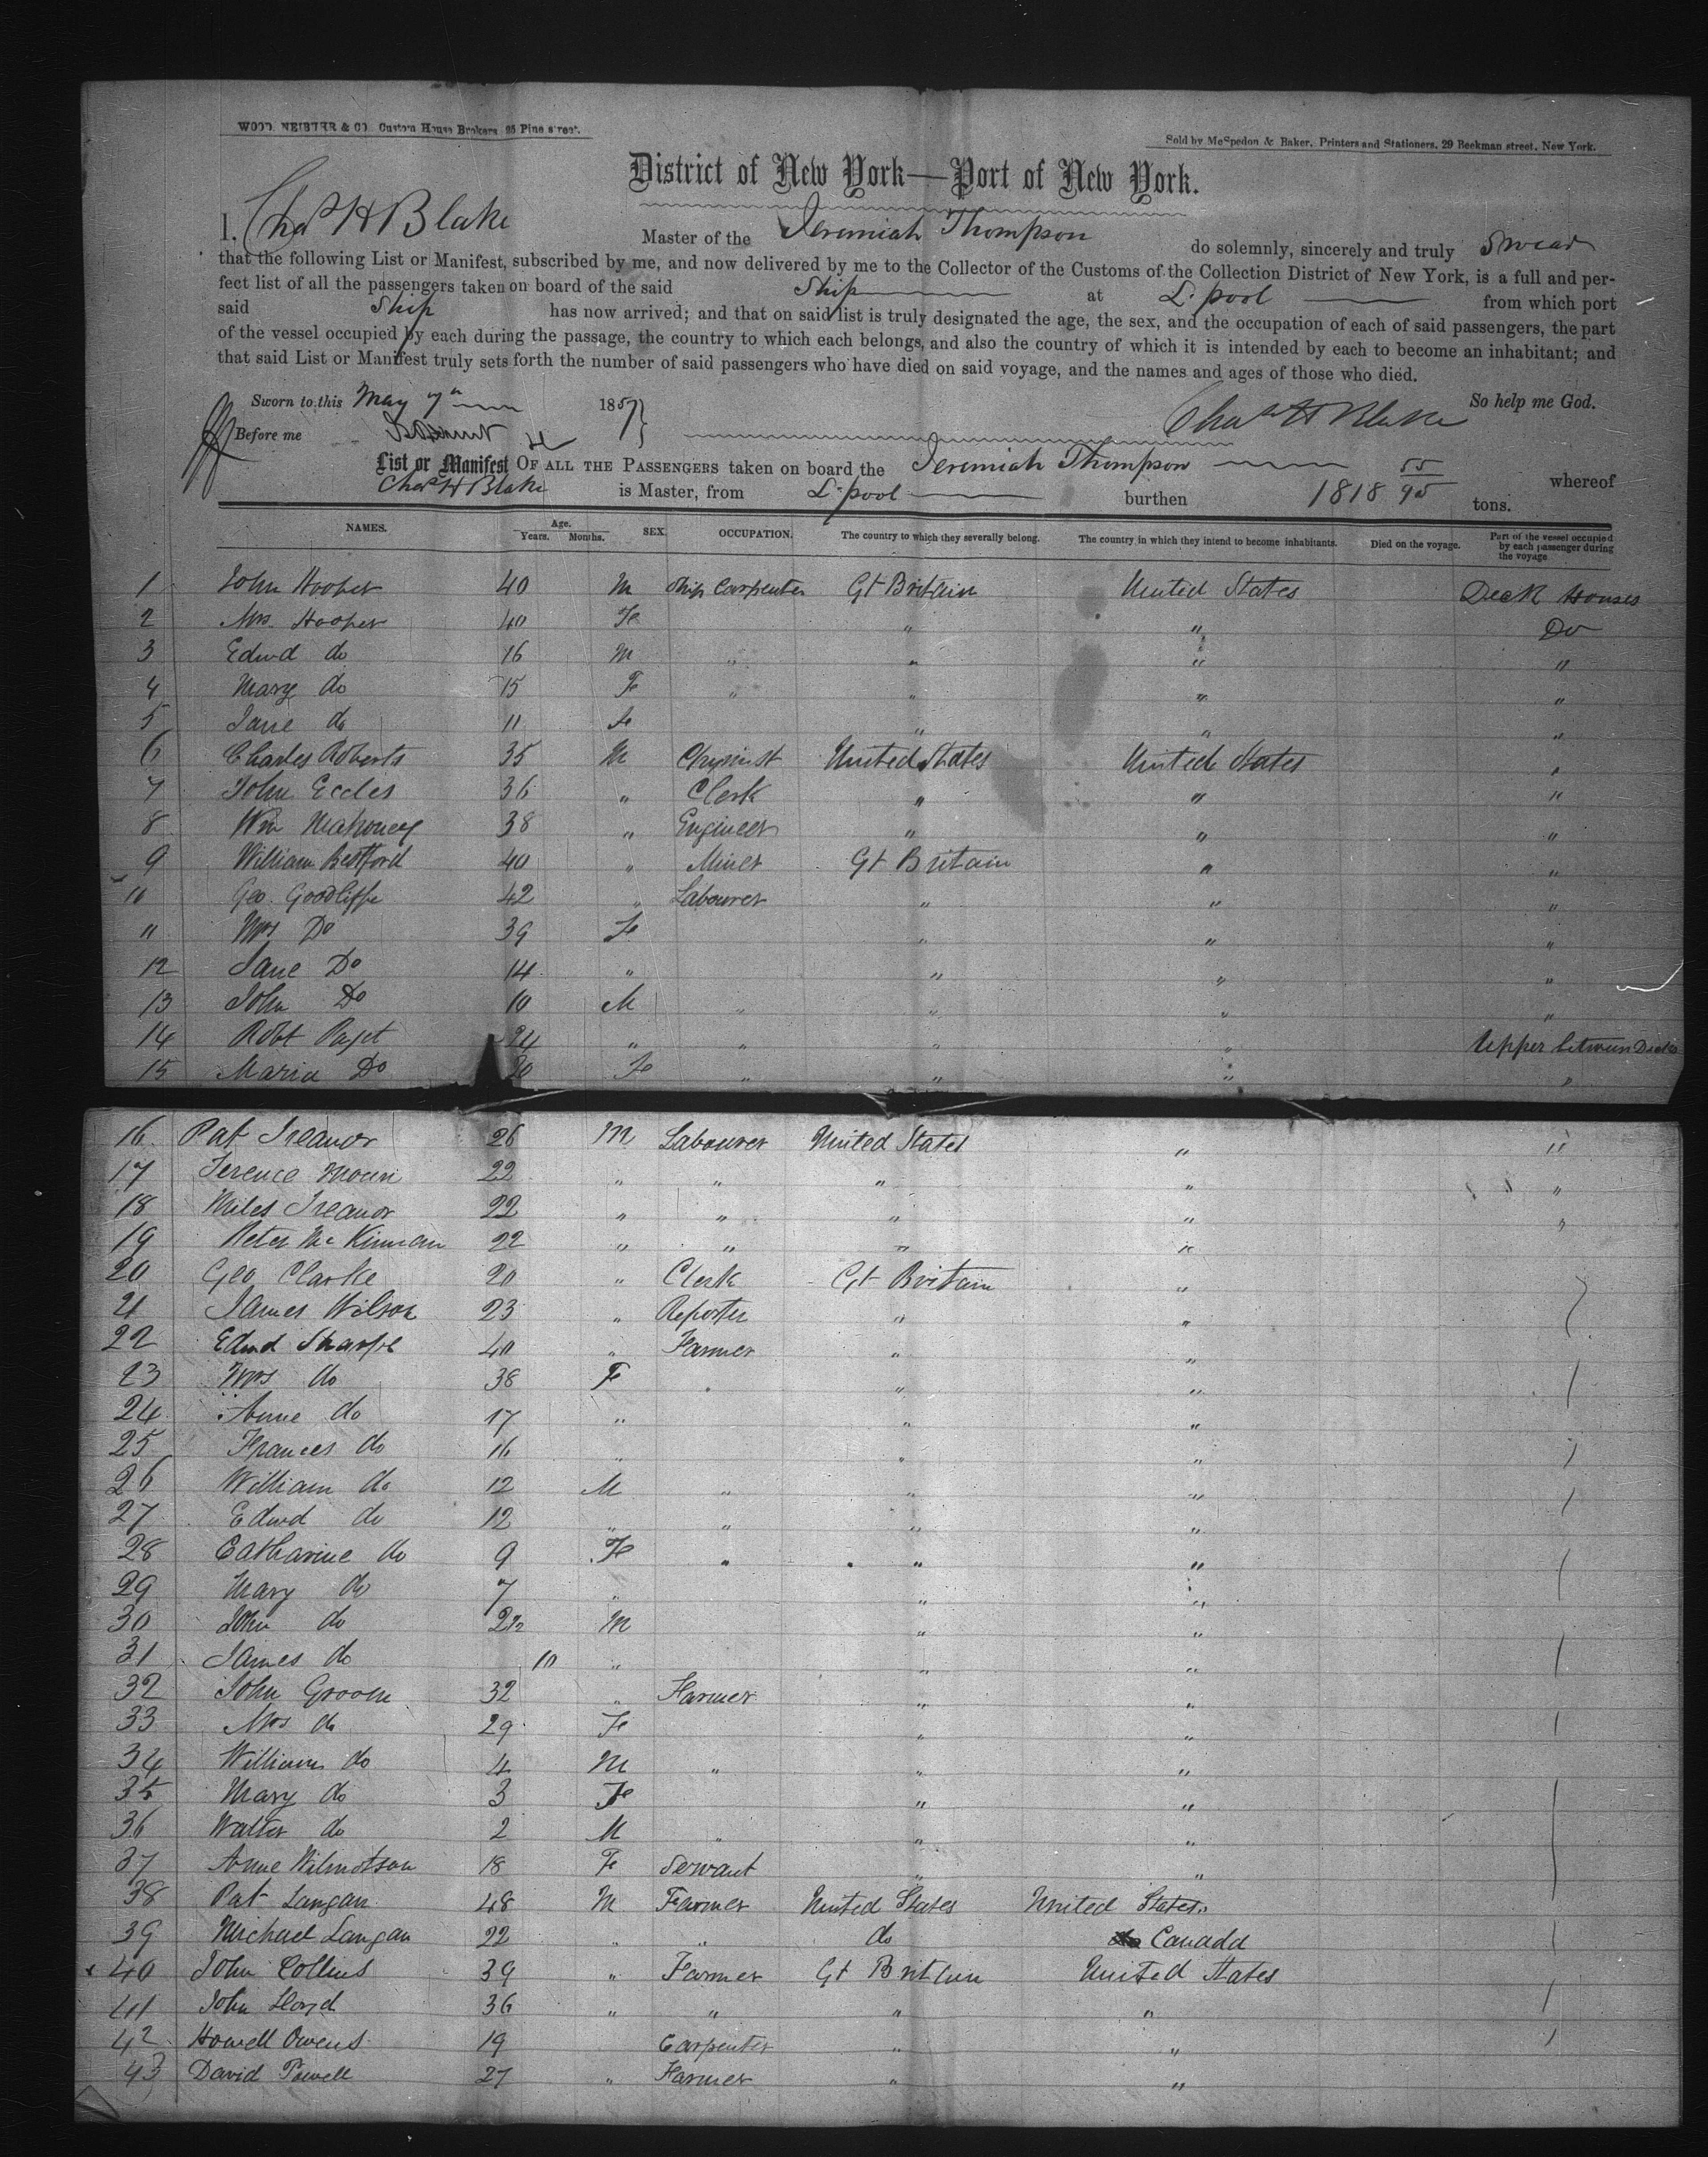 WOOD, NEIBUHR & CO. Custom House Brokers, 95 Pine street.
Sold by McSpedon & Baker, Printers and Stationers, 29 Beekman street, New York.
District of New York—Port of New York.
I, Chas H Blake Master of the Jeremiah Thompson do solemnly, sincerely and truly Swear
that the following List or Manifest, subscribed by me, and now delivered by me to the Collector of the Customs of the Collection District of New York, is a full and per-
fect list of all the passengers taken on board of the said Ship at L.pool from which port
said Ship has now arrived; and that on said list is truly designated the age, the sex, and the occupation of each of said passengers, the part
of the vessel occupied by each during the passage, the country to which each belongs, and also the country of which it is intended by each to become an inhabitant; and
that said List or Manifest truly sets forth the number of said passengers who have died on said voyage, and the names and ages of those who died.
Sworn to this May 7th 1857 So help me God.
Before me Chas H Blake
List or Manifest OF ALL THE PASSENGERS taken on board the Jeremiah Thompson whereof
Chas H Blake is Master, from L.pool burthen 1818 55/95 tons.
NAMES. Age. Years. Months. SEX. OCCUPATION. The country to which they severally belong. The country in which they intend to become inhabitants. Died on the voyage. Part of the vessel occupied by each passenger during the voyage
1 John Hooper 40 M Ship Carpenter Gt Britain United States Deck Houses
2 Mrs Hooper 40 Fe " " Do
3 Edwd do 16 M " " " "
4 Mary do 15 Fe " " " "
5 Jane do 11 Fe " " "
6 Charles Roberts 35 M Chymist United States United States "
7 John Eccles 36 " Clerk " " "
8 Wm Mahoney 38 " Engineer " " "
9 William Bestford 40 " Miner Gt Britain " "
10 Geo. Goodliffe 42 " Labourer " " "
" Mrs Do 39 Fe " " "
12 Jane Do 14 " " " "
13 John Do 10 M " " " "
14 Robt Paget 24 " " " " Upper between Decks
15 Maria Do 20 Fe " " " "
16 Pat Treanor 26 M Labourer United States " "
17 Terence 22 " " " " "
18 Miles Treanor 22 " " " " "
19 Peter Mc Kinman 22 " " " "
20 Geo Clarke 20 " Clerk Gt Britain "
21 James Wilson 23 " Reporter " "
22 Edwd Sharpe 40 " Farmer " "
23 Mrs do 38 F " " "
24 Anne do 17 " " "
25 Frances do 16 " " "
26 William do 12 M " " "
27 Edwd do 12 " " " "
28 Catharine do 9 Fe " " "
29 Mary do 7 " " "
30 John do 2½ M " "
31 James do 10 " " "
32 John Groom 32 " Farmer " "
33 Mrs do 29 Fe " "
34 William do 4 M " " "
35 Mary do 3 Fe " "
36 Walter do 2 M " " "
37 Anne Wilmotson 18 Fe Servant " "
38 Pat Langan 48 M Farmer United States United States
39 Michael Langan 22 " " do Canada
40 John Collins 39 " Farmer Gt Britain United States
41 John Lloyd 36 " " " "
42 Howell Owens 19 Carpenter " "
43 David Powell 27 " Farmer " "